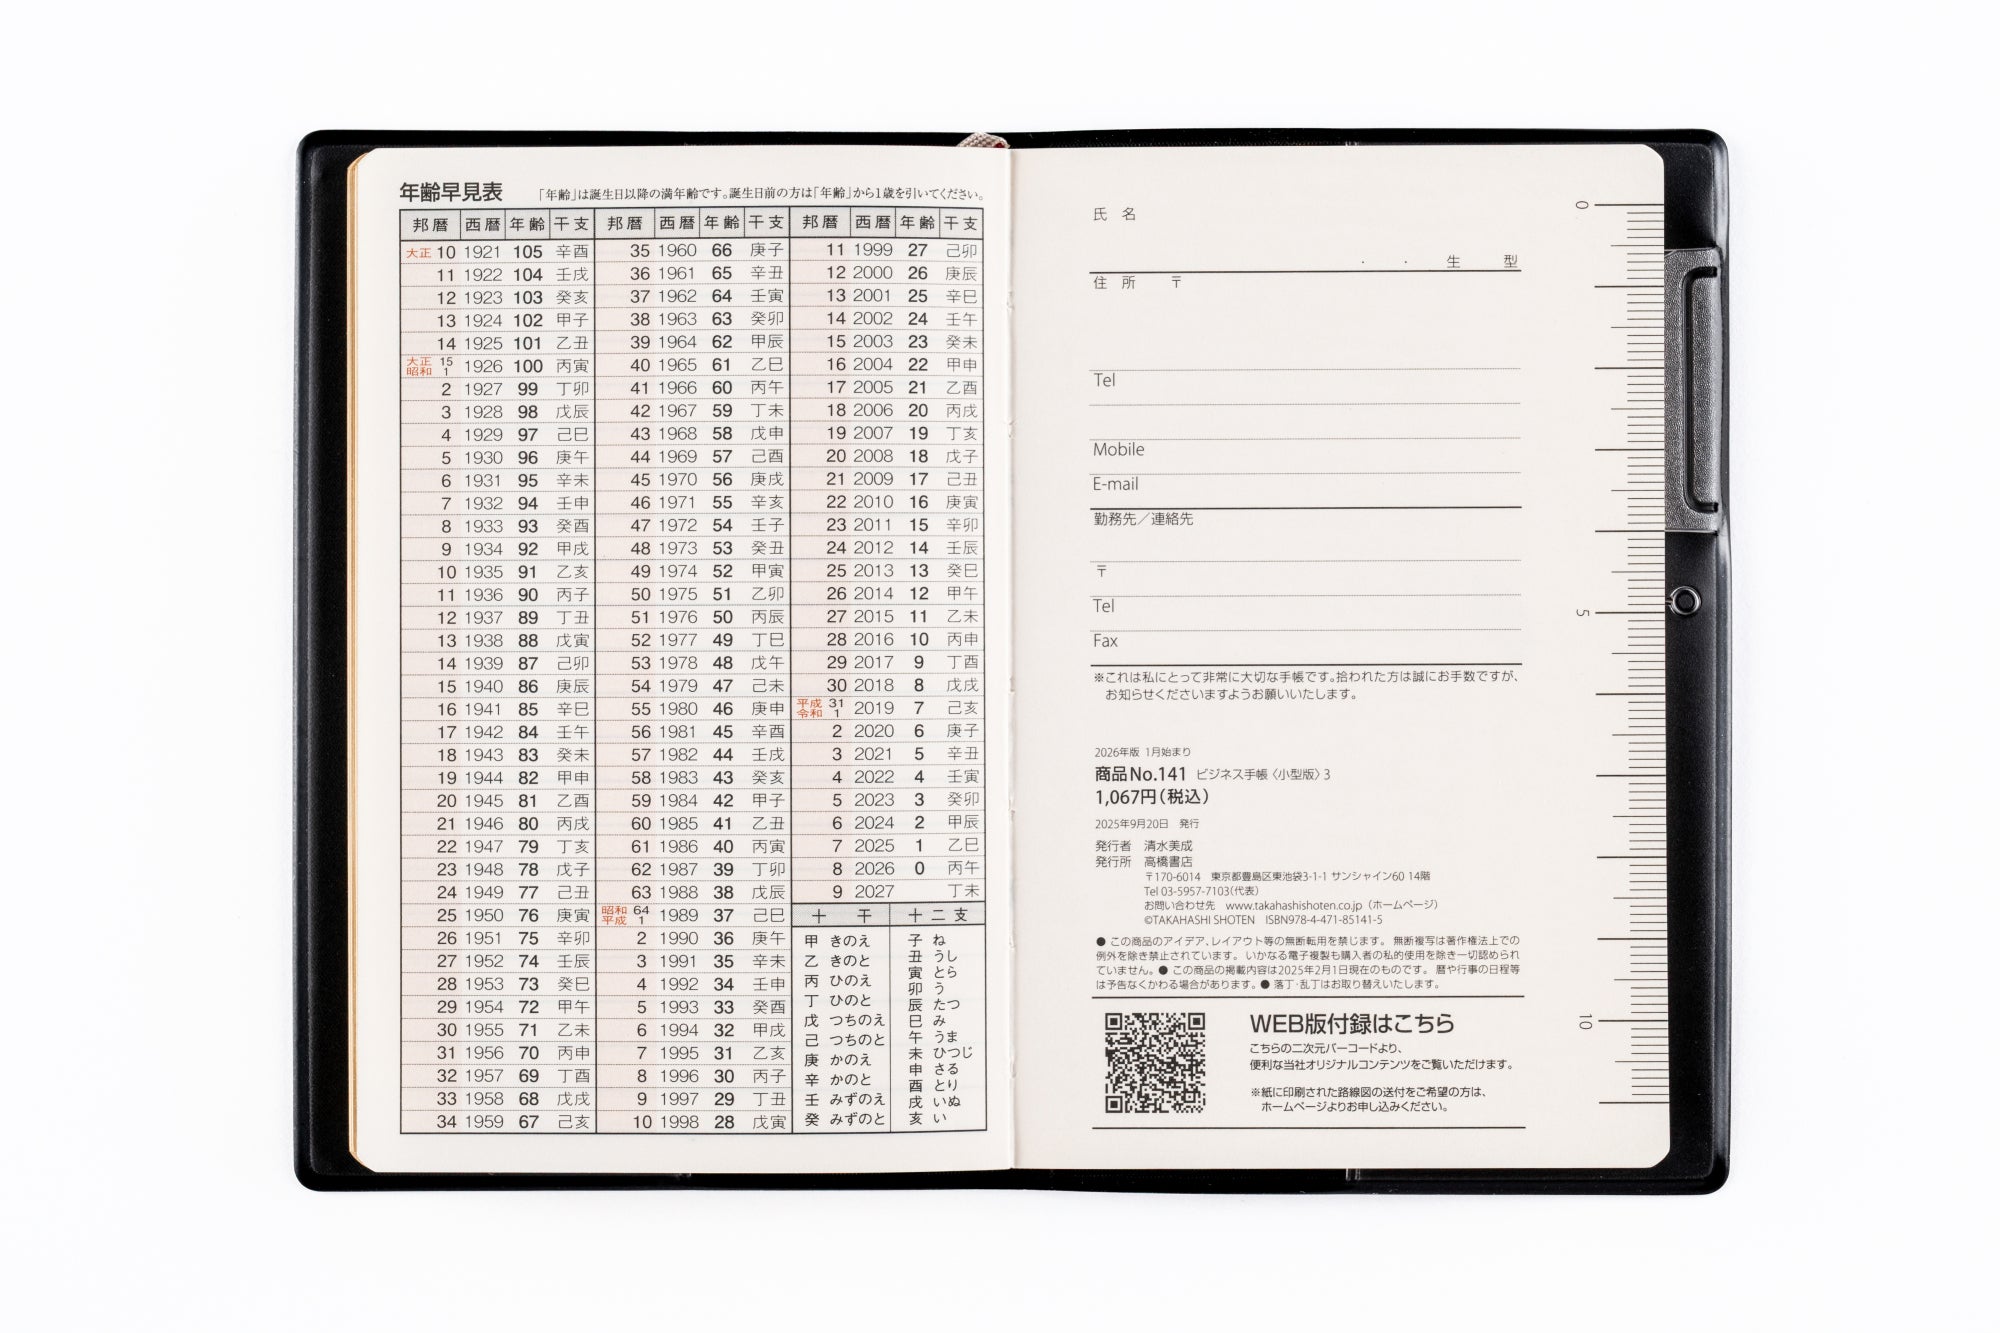 年齢早見表 「年齢」は誕生日以降の満年齢です。誕生日前の方は「年齢」から1歳を引いてください。
邦暦 西暦 年齢 干支 邦暦 西暦 年齢 干支 邦暦 西暦 年齢 干支
大正 10 1921 105 辛酉 35 1960 66 庚子 11 1999 27 己卯
11 1922 104 壬戌 36 1961 65 辛丑 12 2000 26 庚辰
12 1923 103 癸亥 37 1962 64 壬寅 13 2001 25 辛巳
13 1924 102 甲子 38 1963 63 癸卯 14 2002 24 壬午
14 1925 101 乙丑 39 1964 62 甲辰 15 2003 23 癸未
大正 15 昭和 1 1926 100 丙寅 40 1965 61 乙巳 16 2004 22 甲申
2 1927 99 丁卯 41 1966 60 丙午 17 2005 21 乙酉
3 1928 98 戊辰 42 1967 59 丁未 18 2006 20 丙戌
4 1929 97 己巳 43 1968 58 戊申 19 2007 19 丁亥
5 1930 96 庚午 44 1969 57 己酉 20 2008 18 戊子
6 1931 95 辛未 45 1970 56 庚戌 21 2009 17 己丑
7 1932 94 壬申 46 1971 55 辛亥 22 2010 16 庚寅
8 1933 93 癸酉 47 1972 54 壬子 23 2011 15 辛卯
9 1934 92 甲戌 48 1973 53 癸丑 24 2012 14 壬辰
10 1935 91 乙亥 49 1974 52 甲寅 25 2013 13 癸巳
11 1936 90 丙子 50 1975 51 乙卯 26 2014 12 甲午
12 1937 89 丁丑 51 1976 50 丙辰 27 2015 11 乙未
13 1938 88 戊寅 52 1977 49 丁巳 28 2016 10 丙申
14 1939 87 己卯 53 1978 48 戊午 29 2017 9 丁酉
15 1940 86 庚辰 54 1979 47 己未 30 2018 8 戊戌
16 1941 85 辛巳 55 1980 46 庚申 平成 31 令和 1 2019 7 己亥
17 1942 84 壬午 56 1981 45 辛酉 2 2020 6 庚子
18 1943 83 癸未 57 1982 44 壬戌 3 2021 5 辛丑
19 1944 82 甲申 58 1983 43 癸亥 4 2022 4 壬寅
20 1945 81 乙酉 59 1984 42 甲子 5 2023 3 癸卯
21 1946 80 丙戌 60 1985 41 乙丑 6 2024 2 甲辰
22 1947 79 丁亥 61 1986 40 丙寅 7 2025 1 乙巳
23 1948 78 戊子 62 1987 39 丁卯 8 2026 0 丙午
24 1949 77 己丑 63 1988 38 戊辰 9 2027 丁未
25 1950 76 庚寅 昭和 64 平成 1 1989 37 己巳
26 1951 75 辛卯 2 1990 36 庚午
27 1952 74 壬辰 3 1991 35 辛未
28 1953 73 癸巳 4 1992 34 壬申
29 1954 72 甲午 5 1993 33 癸酉
30 1955 71 乙未 6 1994 32 甲戌
31 1956 70 丙申 7 1995 31 乙亥
32 1957 69 丁酉 8 1996 30 丙子
33 1958 68 戊戌 9 1997 29 丁丑
34 1959 67 己亥 10 1998 28 戊寅
十干
甲 きのえ
乙 きのと
丙 ひのえ
丁 ひのと
戊 つちのえ
己 つちのと
庚 かのえ
辛 かのと
壬 みずのえ
癸 みずのと
十二支
子 ね
丑 うし
寅 とら
卯 う
辰 たつ
巳 み
午 うま
未 ひつじ
申 さる
酉 とり
戌 いぬ
亥 い
氏 名
・ ・ 生 型
住 所 〒
Tel
Mobile
E-mail
勤務先／連絡先
〒
Tel
Fax
※これは私にとって非常に大切な手帳です。拾われた方は誠にお手数ですが、
お知らせくださいますようお願いいたします。
2026年版 1月始まり
商品No.141 ビジネス手帳〈小型版〉3
1,067円（税込）
2025年9月20日 発行
発行者 清水美成
発行所 高橋書店
〒170-6014 東京都豊島区東池袋3-1-1 サンシャイン60 14階
Tel 03-5957-7103（代表）
お問い合わせ先 www.takahashishoten.co.jp（ホームページ）
©TAKAHASHI SHOTEN ISBN978-4-471-85141-5
● この商品のアイデア、レイアウト等の無断転用を禁じます。 無断複写は著作権法上での
例外を除き禁止されています。 いかなる電子複製も購入者の私的使用を除き一切認められ
ていません。● この商品の掲載内容は2025年2月1日現在のものです。 暦や行事の日程等
は予告なくかわる場合があります。● 落丁・乱丁はお取り替えいたします。
WEB版付録はこちら
こちらの二次元バーコードより、
便利な当社オリジナルコンテンツをご覧いただけます。
※紙に印刷された路線図の送付をご希望の方は、
ホームページよりお申し込みください。
0
5
10